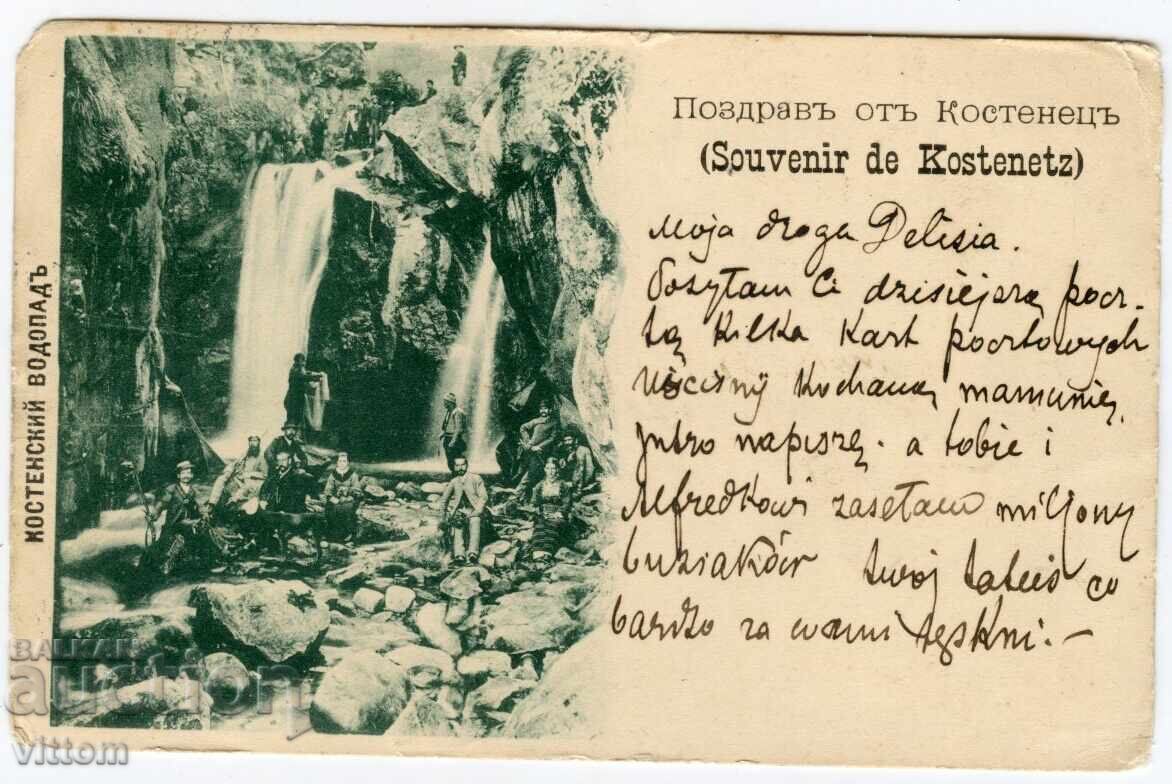 Поздравъ отъ Костенецъ
(Souvenir de Kostenetz)
КОСТЕНСКИЙ ВОДОПАДЪ
Moja droga
Posyłam Ci dzisiejszą pocz-
tą kilka kart pocztowych
Uściśnij kochaną mamunię.
Jutro napiszę. a tobie i
Alfredkowi zasełam miljony
buziaków twoj tatuś co
bardzo za wami tęskni. —
BALKAN
auction
vittom